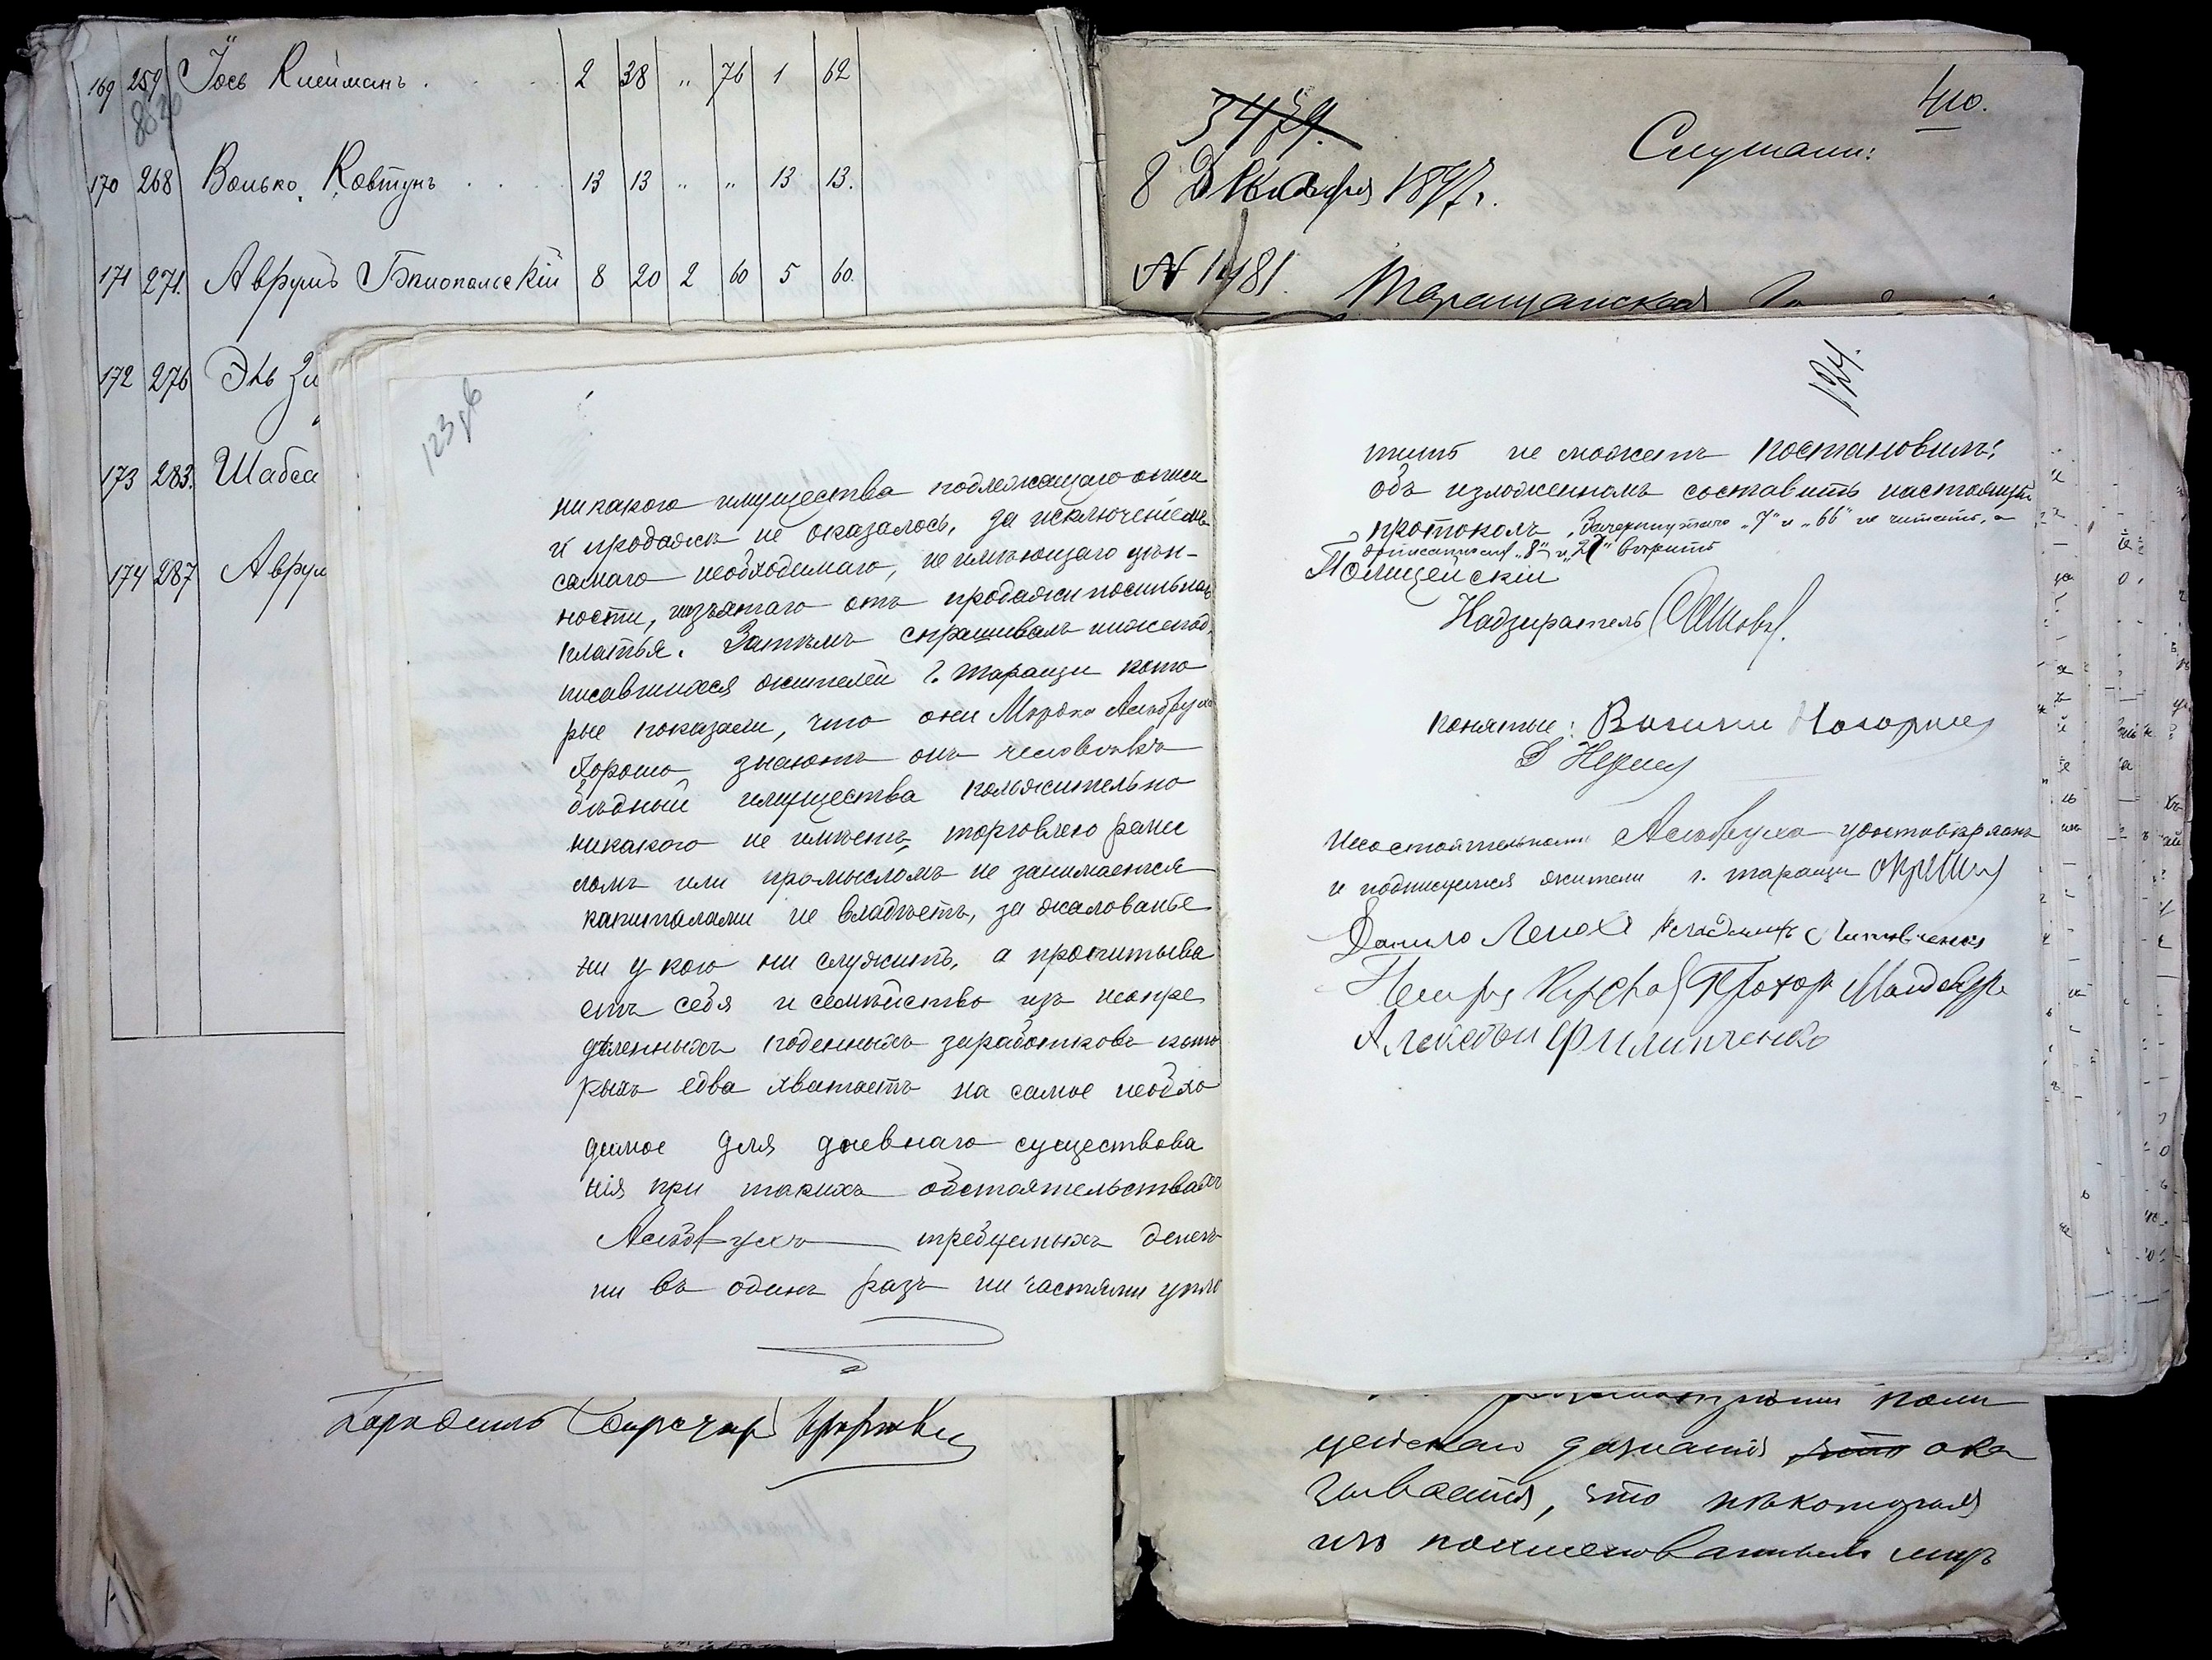 169 259 Іось Клейманъ . 2 38 „ 76 1 62
170 268 Волько Ковтунъ . . . 13 13 „ „ 13 13.
171 271. Аврумъ Бялопольскій 8 20 2 60 5 60.
172 276 Эль
173 283. Шабса
174 287 Аврум
410.
3479.
Слушали:
8 Декабря 1897 г.
№ 1481.
Таращанская
123 об
никакого имущества подлежащаго описи
и продажи не оказалось, за исключеніемъ
самаго необходимаго, не имѣющаго цѣн-
ности, изъятаго отъ продажи носильнаго
платья. Затѣмъ спрашивалъ нижепод.
писавшихся жителей г. Таращи кото
рые показали, что они Мордка Альтбуха
хорошо знаютъ онъ человѣкъ
бѣдный имущества положительно
никакого не имѣетъ, торговлею ремес
ломъ или промысломъ не занимается
капиталами не владѣетъ, за жалованье
ни у кого ни служитъ, а прочитыва
етъ себя и семѣйство изъ неопре
дѣленныхъ поденныхъ заработковъ кото
рыхъ едва хватаетъ на самое необхо
димое для дневнаго существова
нія при такихъ обстоятельствахъ
требуемыхъ денегъ
ни въ одинъ разъ ни частями упла
124.
тить не можетъ постановилъ:
объ изложенномъ составить настоящій
протоколъ. Зачеркнутаго „7" и „66" не читать, а
дописанному „8" и „21" вѣрить
Полицейскій
Надзиратель
понятые:
Несостоятельность удостовѣряютъ
и подписуемся жители г. Таращи
Данило
Прохоръ
Алексѣй Филипченко
поли
цейскаго дознанія что ока
зывается, что нѣкоторыя
изъ поименованныхъ лицъ